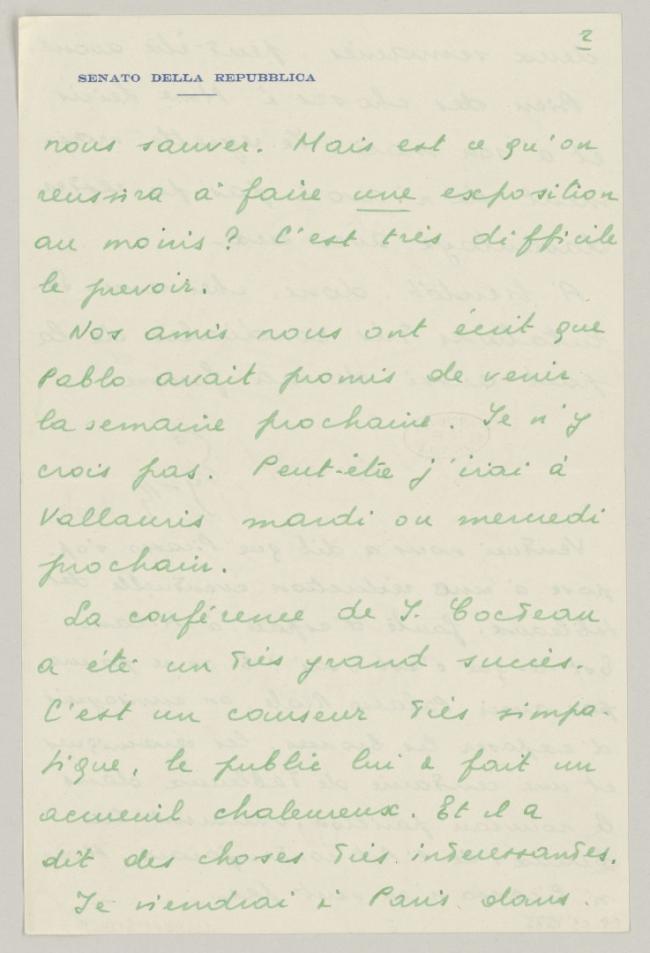 2
SENATO DELLA REPUBBLICA
nous sauver. Mais est ce qu'on
reussira à faire une exposition
au moins? C'est très difficile
le prevoir.
Nos amis nous ont écrit que
Pablo avait promis de venir
la semaine prochaine. Je n'y
crois pas. Peut-être j'irai à
Vallauris mardi ou mercredi
prochain.
La conférence de J. Cocteau
a été un très grand succès.
C'est un causeur très simpa-
tique, le public lui a fait un
acceuil chaleureux. Et il a
dit des choses très interessantes.
Je viendrai à Paris dans